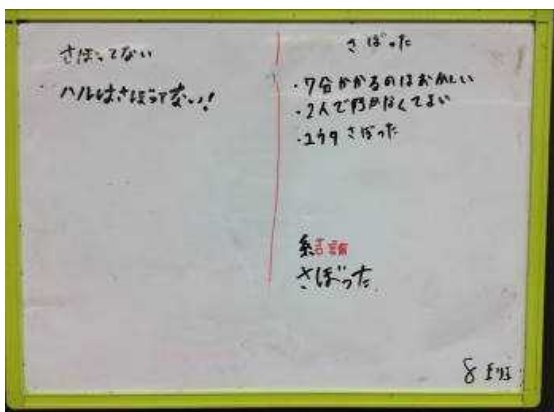 さぼってない
ハルはさぼってない!
さぼった
・7分かかるのはおかしい
・2人で行かなくてよい
・ユウタ さぼった
結論
さぼった
8班